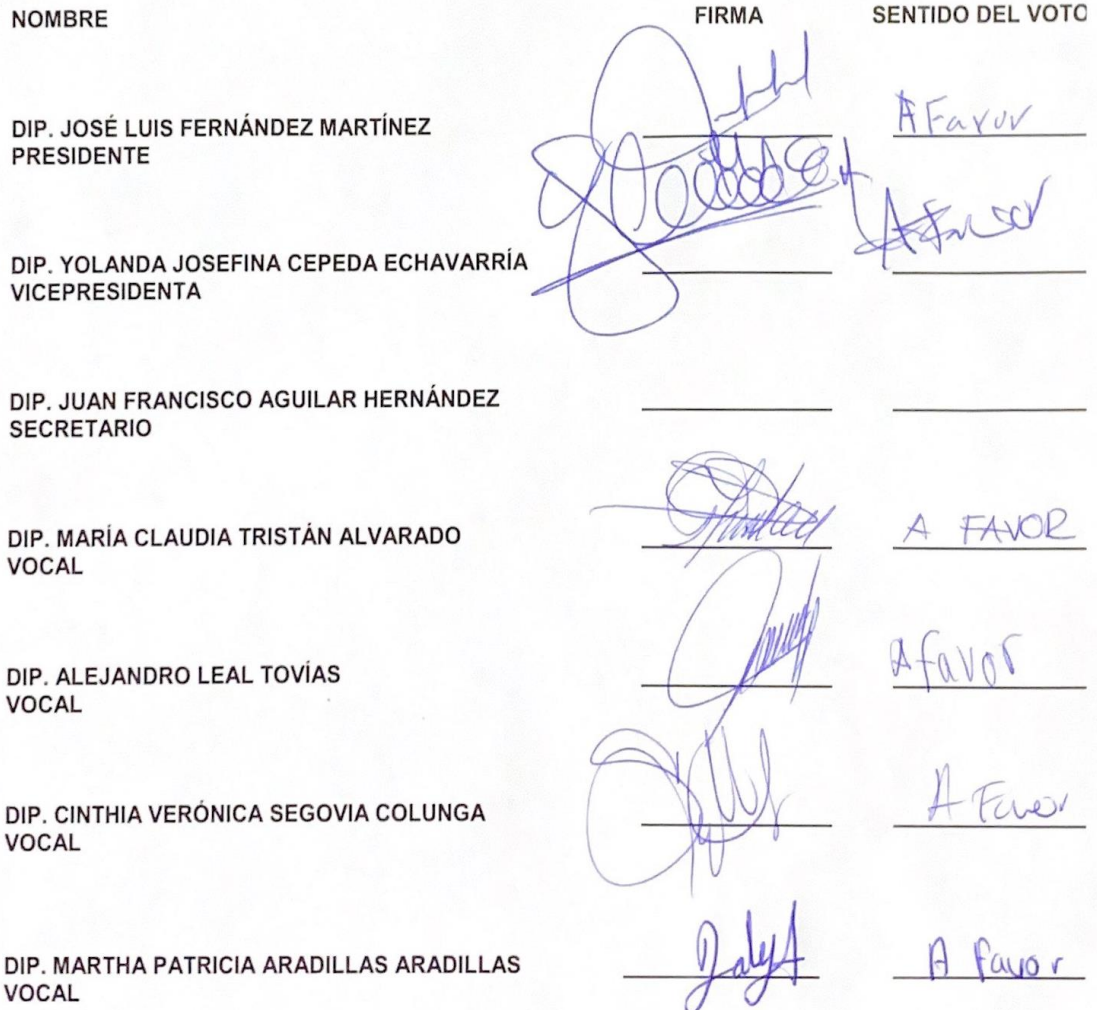 NOMBRE FIRMA SENTIDO DEL VOTO
DIP. JOSÉ LUIS FERNÁNDEZ MARTÍNEZ A Favor
PRESIDENTE
DIP. YOLANDA JOSEFINA CEPEDA ECHAVARRÍA A Favor
VICEPRESIDENTA
DIP. JUAN FRANCISCO AGUILAR HERNÁNDEZ
SECRETARIO
DIP. MARÍA CLAUDIA TRISTÁN ALVARADO A FAVOR
VOCAL
DIP. ALEJANDRO LEAL TOVÍAS A favor
VOCAL
DIP. CINTHIA VERÓNICA SEGOVIA COLUNGA A Favor
VOCAL
DIP. MARTHA PATRICIA ARADILLAS ARADILLAS A Favor
VOCAL